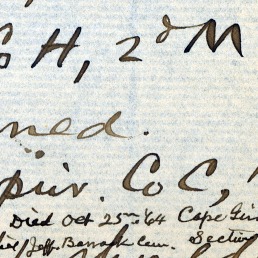 H, 2d M
ned.
priv. Co C,
Died Oct 25th '64 Cape Gir
Jeff. Barrack Cem. Section